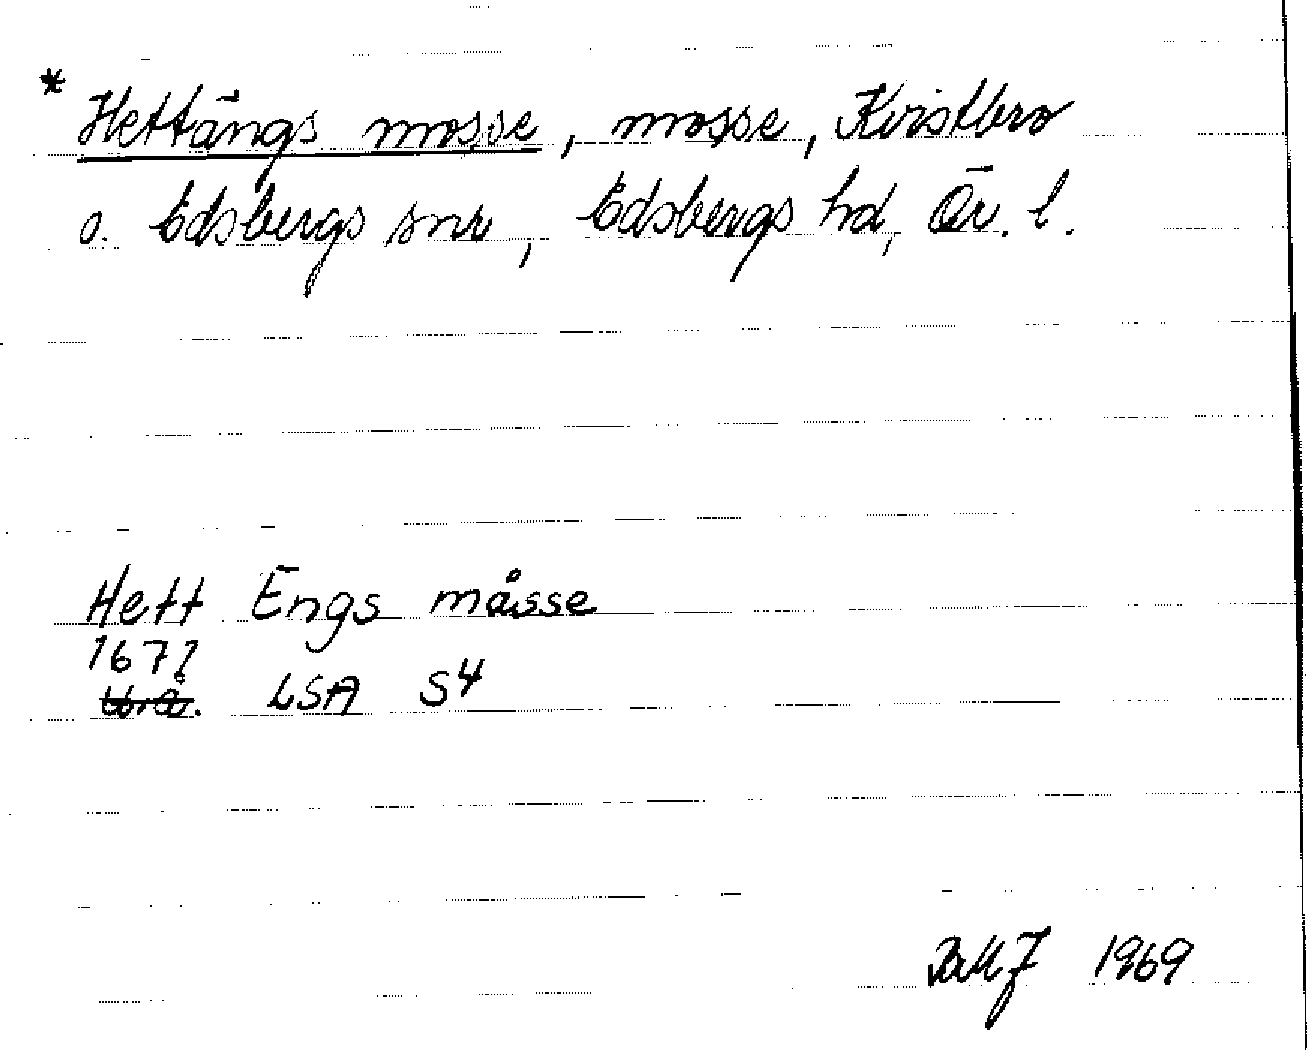 * Hettängs mosse, mosse, Kvistbro
o. Edsbergs snr, Edsbergs hd, Ör. l.
Hett Engs måsse
1677
U.å. LSA S4
BMJ 1969